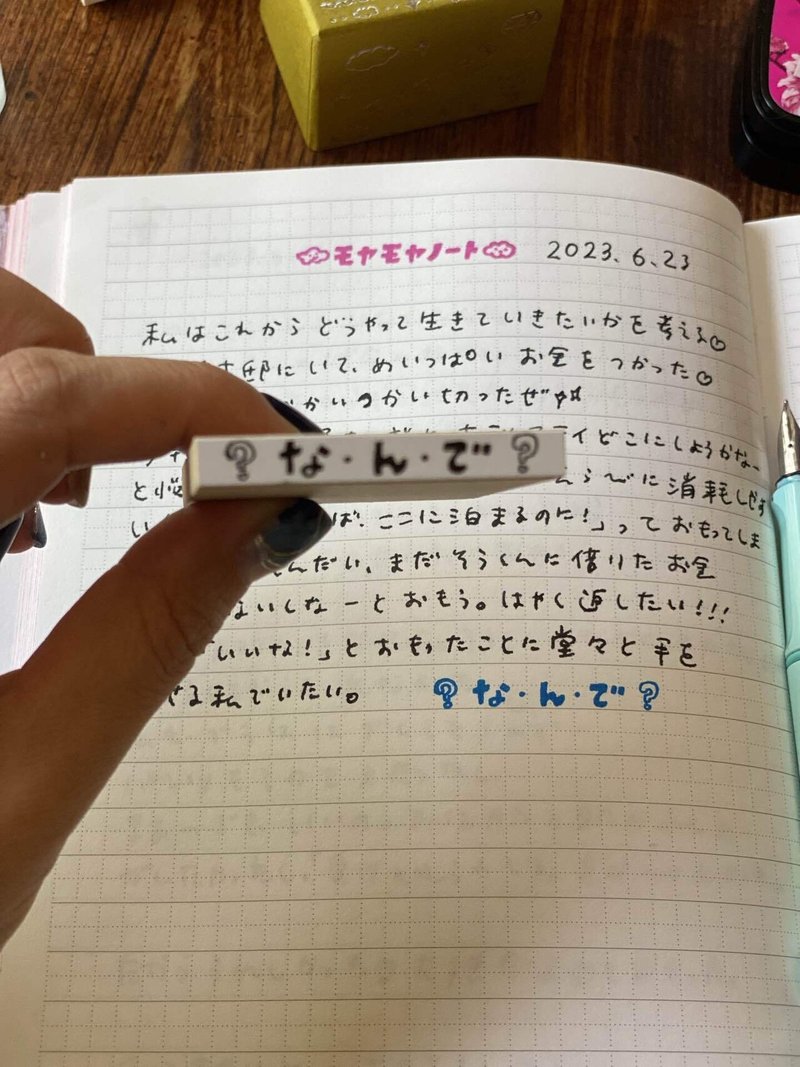 モヤモヤノート 2023.6.23
私はこれからどうやって生きていきたいかを考える
邸にいて、めいっぱい お金を つかった
かいつかい切ったぜ
？な・ん・で？
どこにしようかなー
と悩 に 消耗しだす
い ば、ここに泊まるのに！」っておもってしま
んだい、まだ そうくんに 借りた お金
ないしなーと おもう。はやく 返したい！！！
「いいな！」と おもったことに 堂々と 手を
せる 私でいたい。 ？な・ん・で？